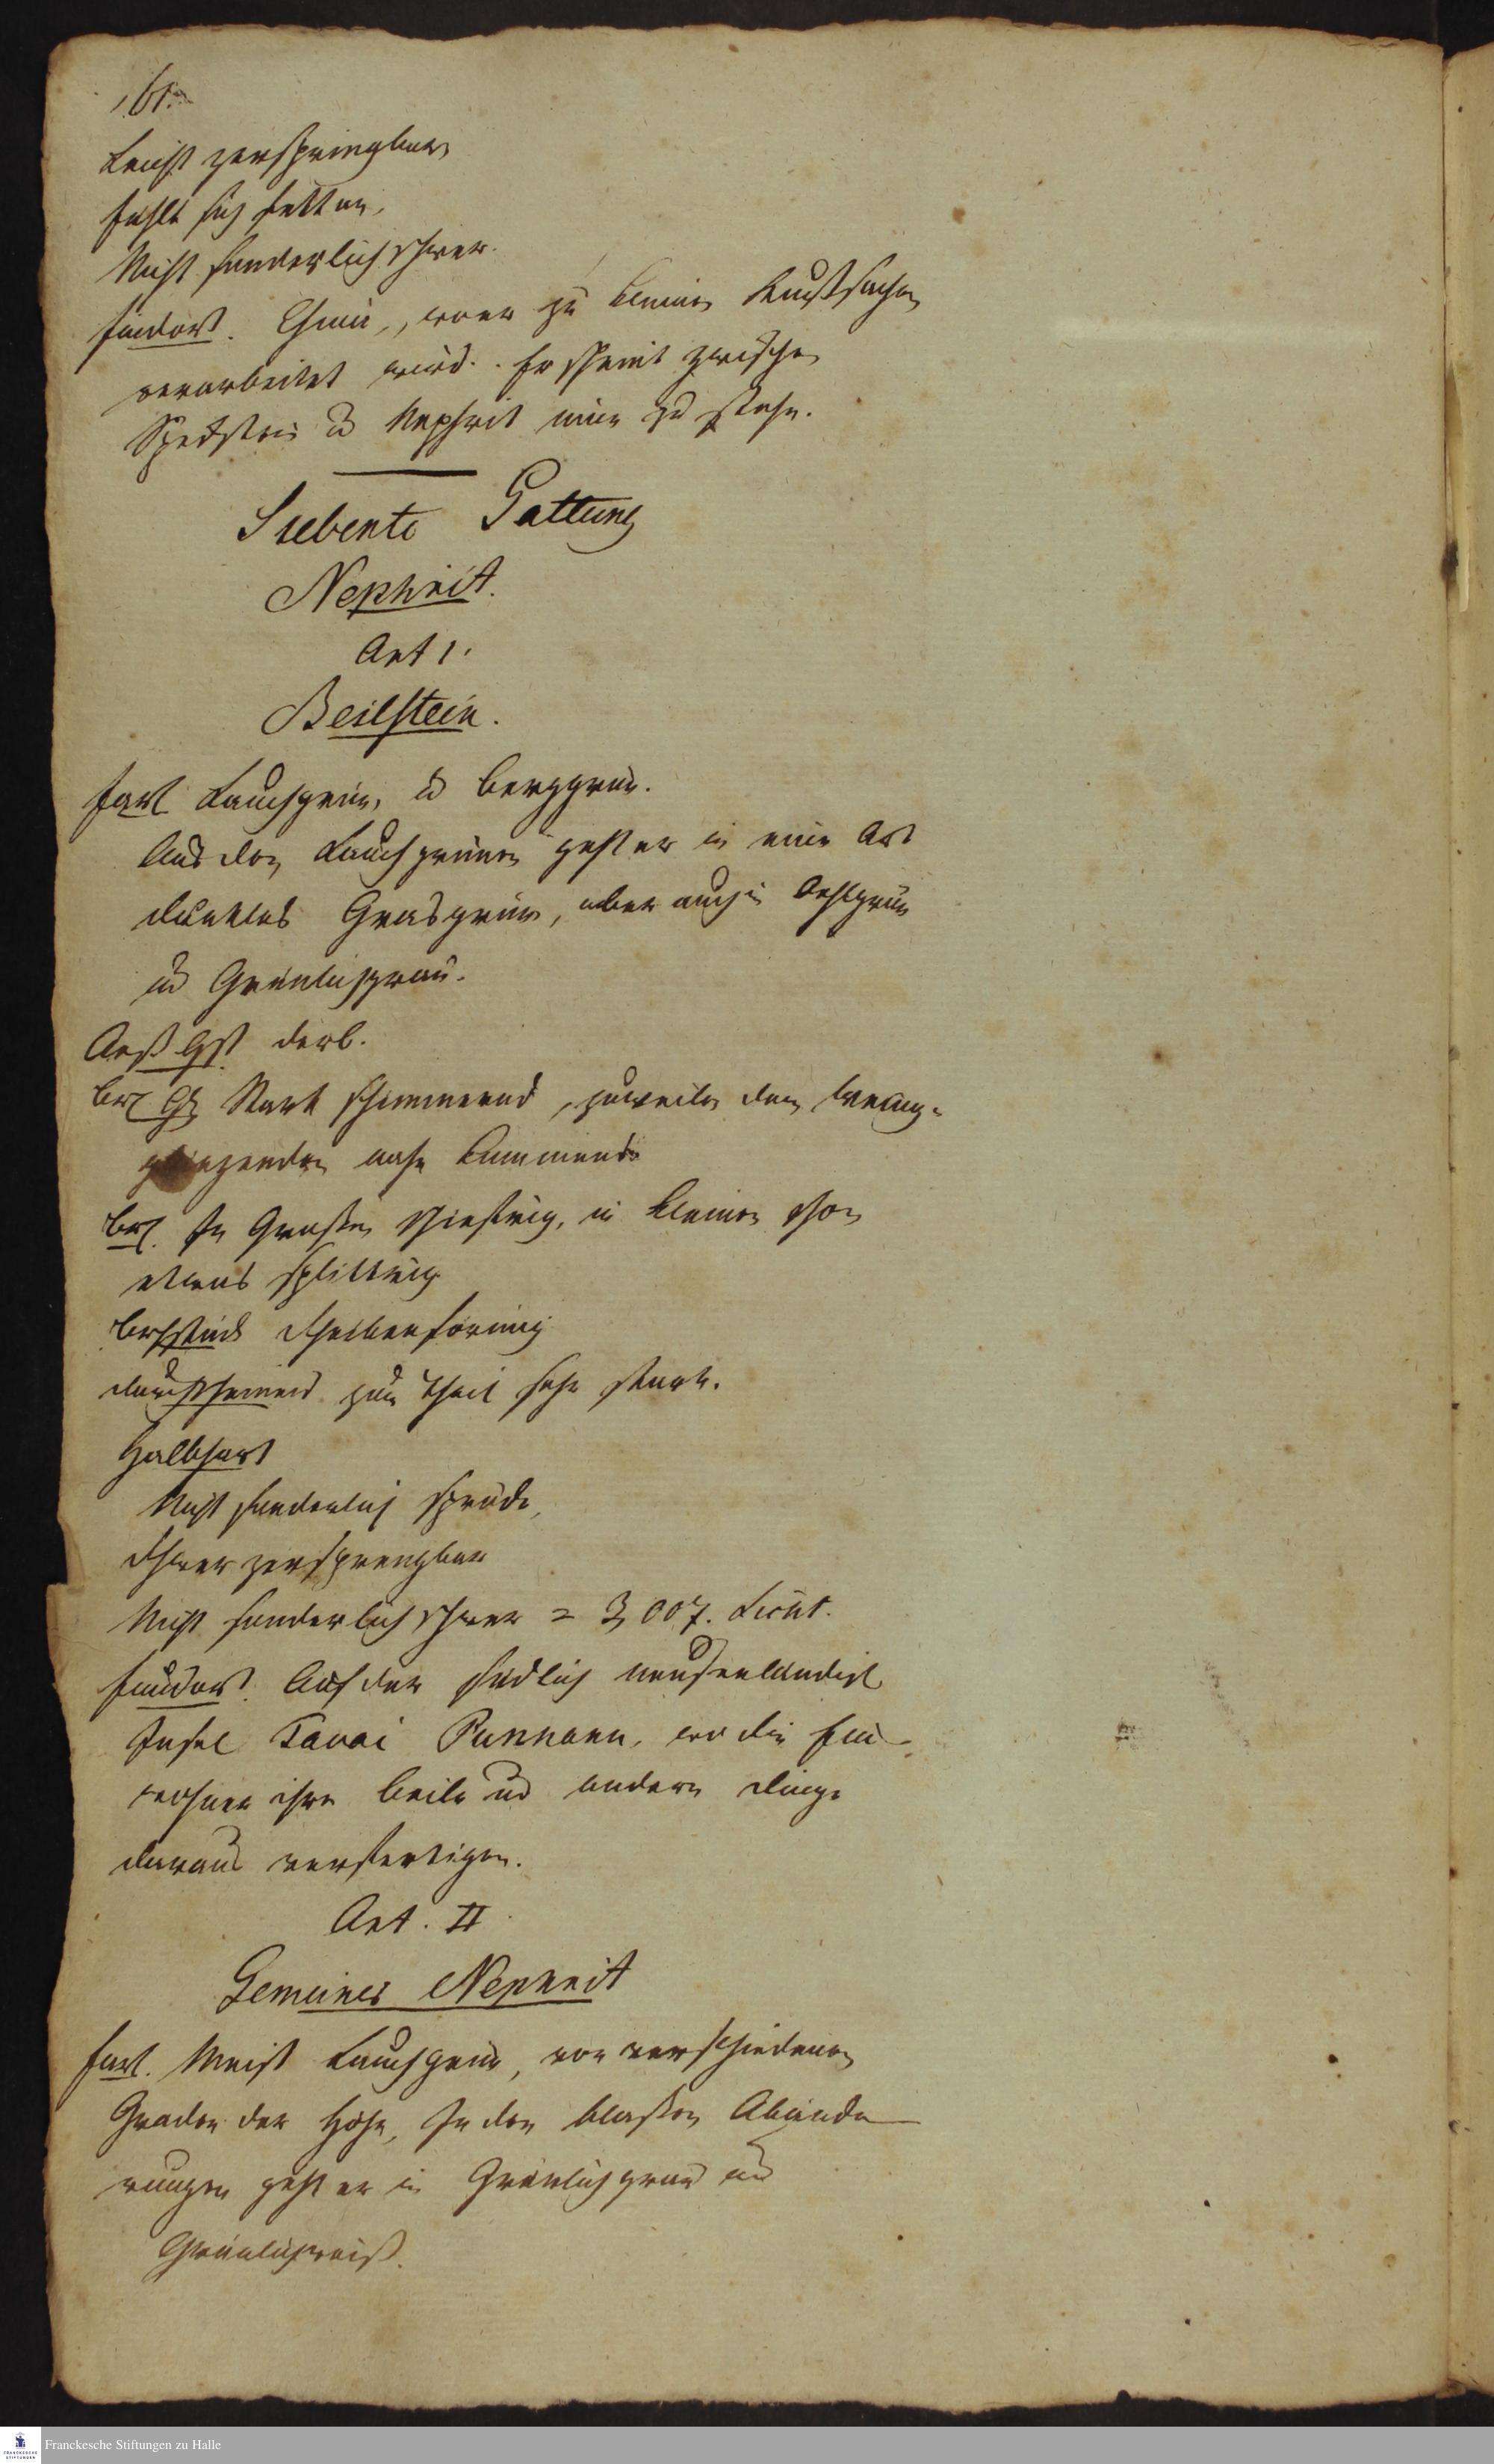 161.
Leicht zerspringbar
fühlt sich fett an,
Nicht sonderlich schwer.
Findort. China, wo er zu kleinen Kunstsachen
verarbeitet wird. Er scheint zwischen
Speckstein u Nephrit inne zu stehn.
Siebente Gattung
Nephrit.
Art 1.
Beilstein.
Farb Lauchgrün, u berggrün.
Aus dem Lauchgrünen geht er in eine Art
dunkles Grasgrün, aber auch in Oehlgrün
und Grünlichgrau.
Aeß Gst derb.
br Gz Stark schimmernd, zuweilen dem wenig-
glänzenden nahe kommend
br. Im Großen schiefrig, im kleinen schon
etwas splittrig
brchstück scheibenförmig
durchscheinend zum Theil sehr stark.
Halbhart
Nicht sonderlich spröde,
schwer zersprengbar
Nicht sonderlich schwer = 3,007.
Fundort. Auf der südlich neuseeländisch
Insel Tavai Punnanu, wo die Ein-
wohner ihre Beile und andere Dinge
daraus verfertigen.
Art. II
Gemeiner Nephrit
Farb. Meist Lauchgrün, von verschiedenen
Graden der Höhe, In den blassen Abände
rungen geht er in Grünlichgrau und
Grünlichweiß.
Franckesche Stiftungen zu Halle
FRANCKESCHE
STIFTUNGEN